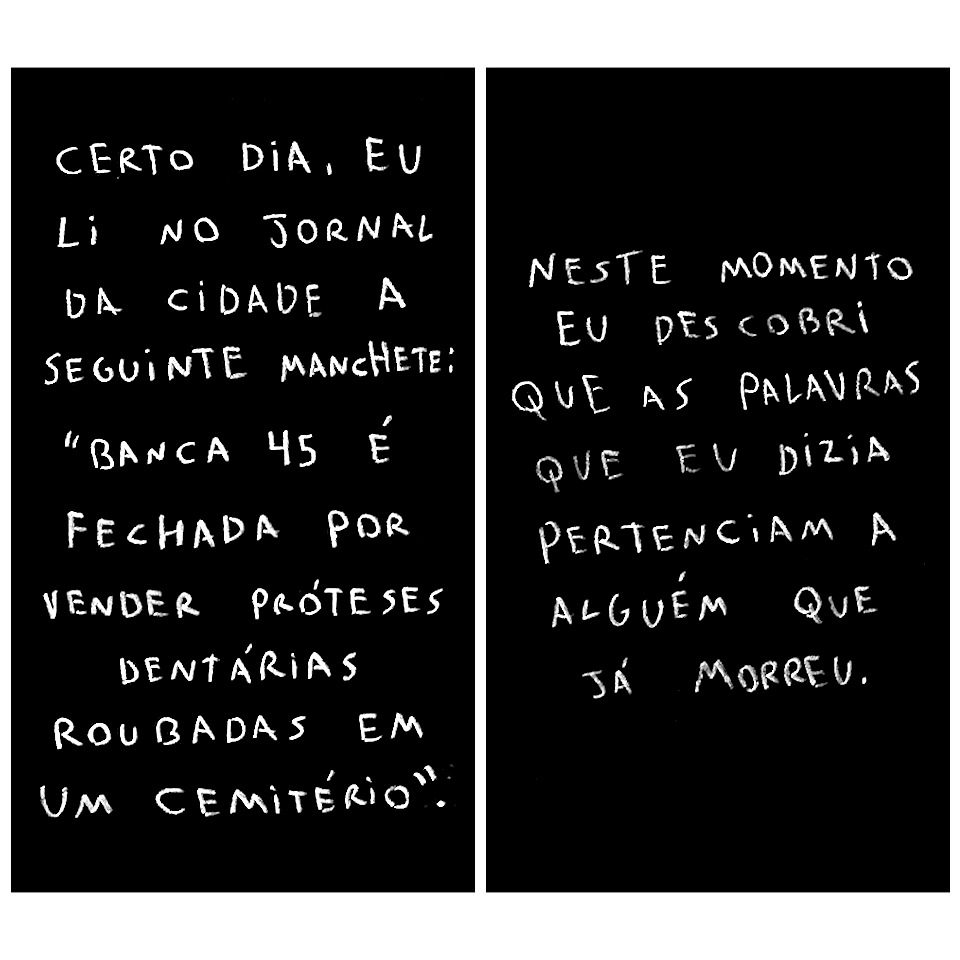 CERTO DIA, EU
LI NO JORNAL
DA CIDADE A
SEGUINTE MANCHETE:
"BANCA 45 É
FECHADA POR
VENDER PRÓTESES
DENTÁRIAS
ROUBADAS EM
UM CEMITÉRIO".
NESTE MOMENTO
EU DESCOBRI
QUE AS PALAVRAS
QUE EU DIZIA
PERTENCIAM A
ALGUÉM QUE
JÁ MORREU.